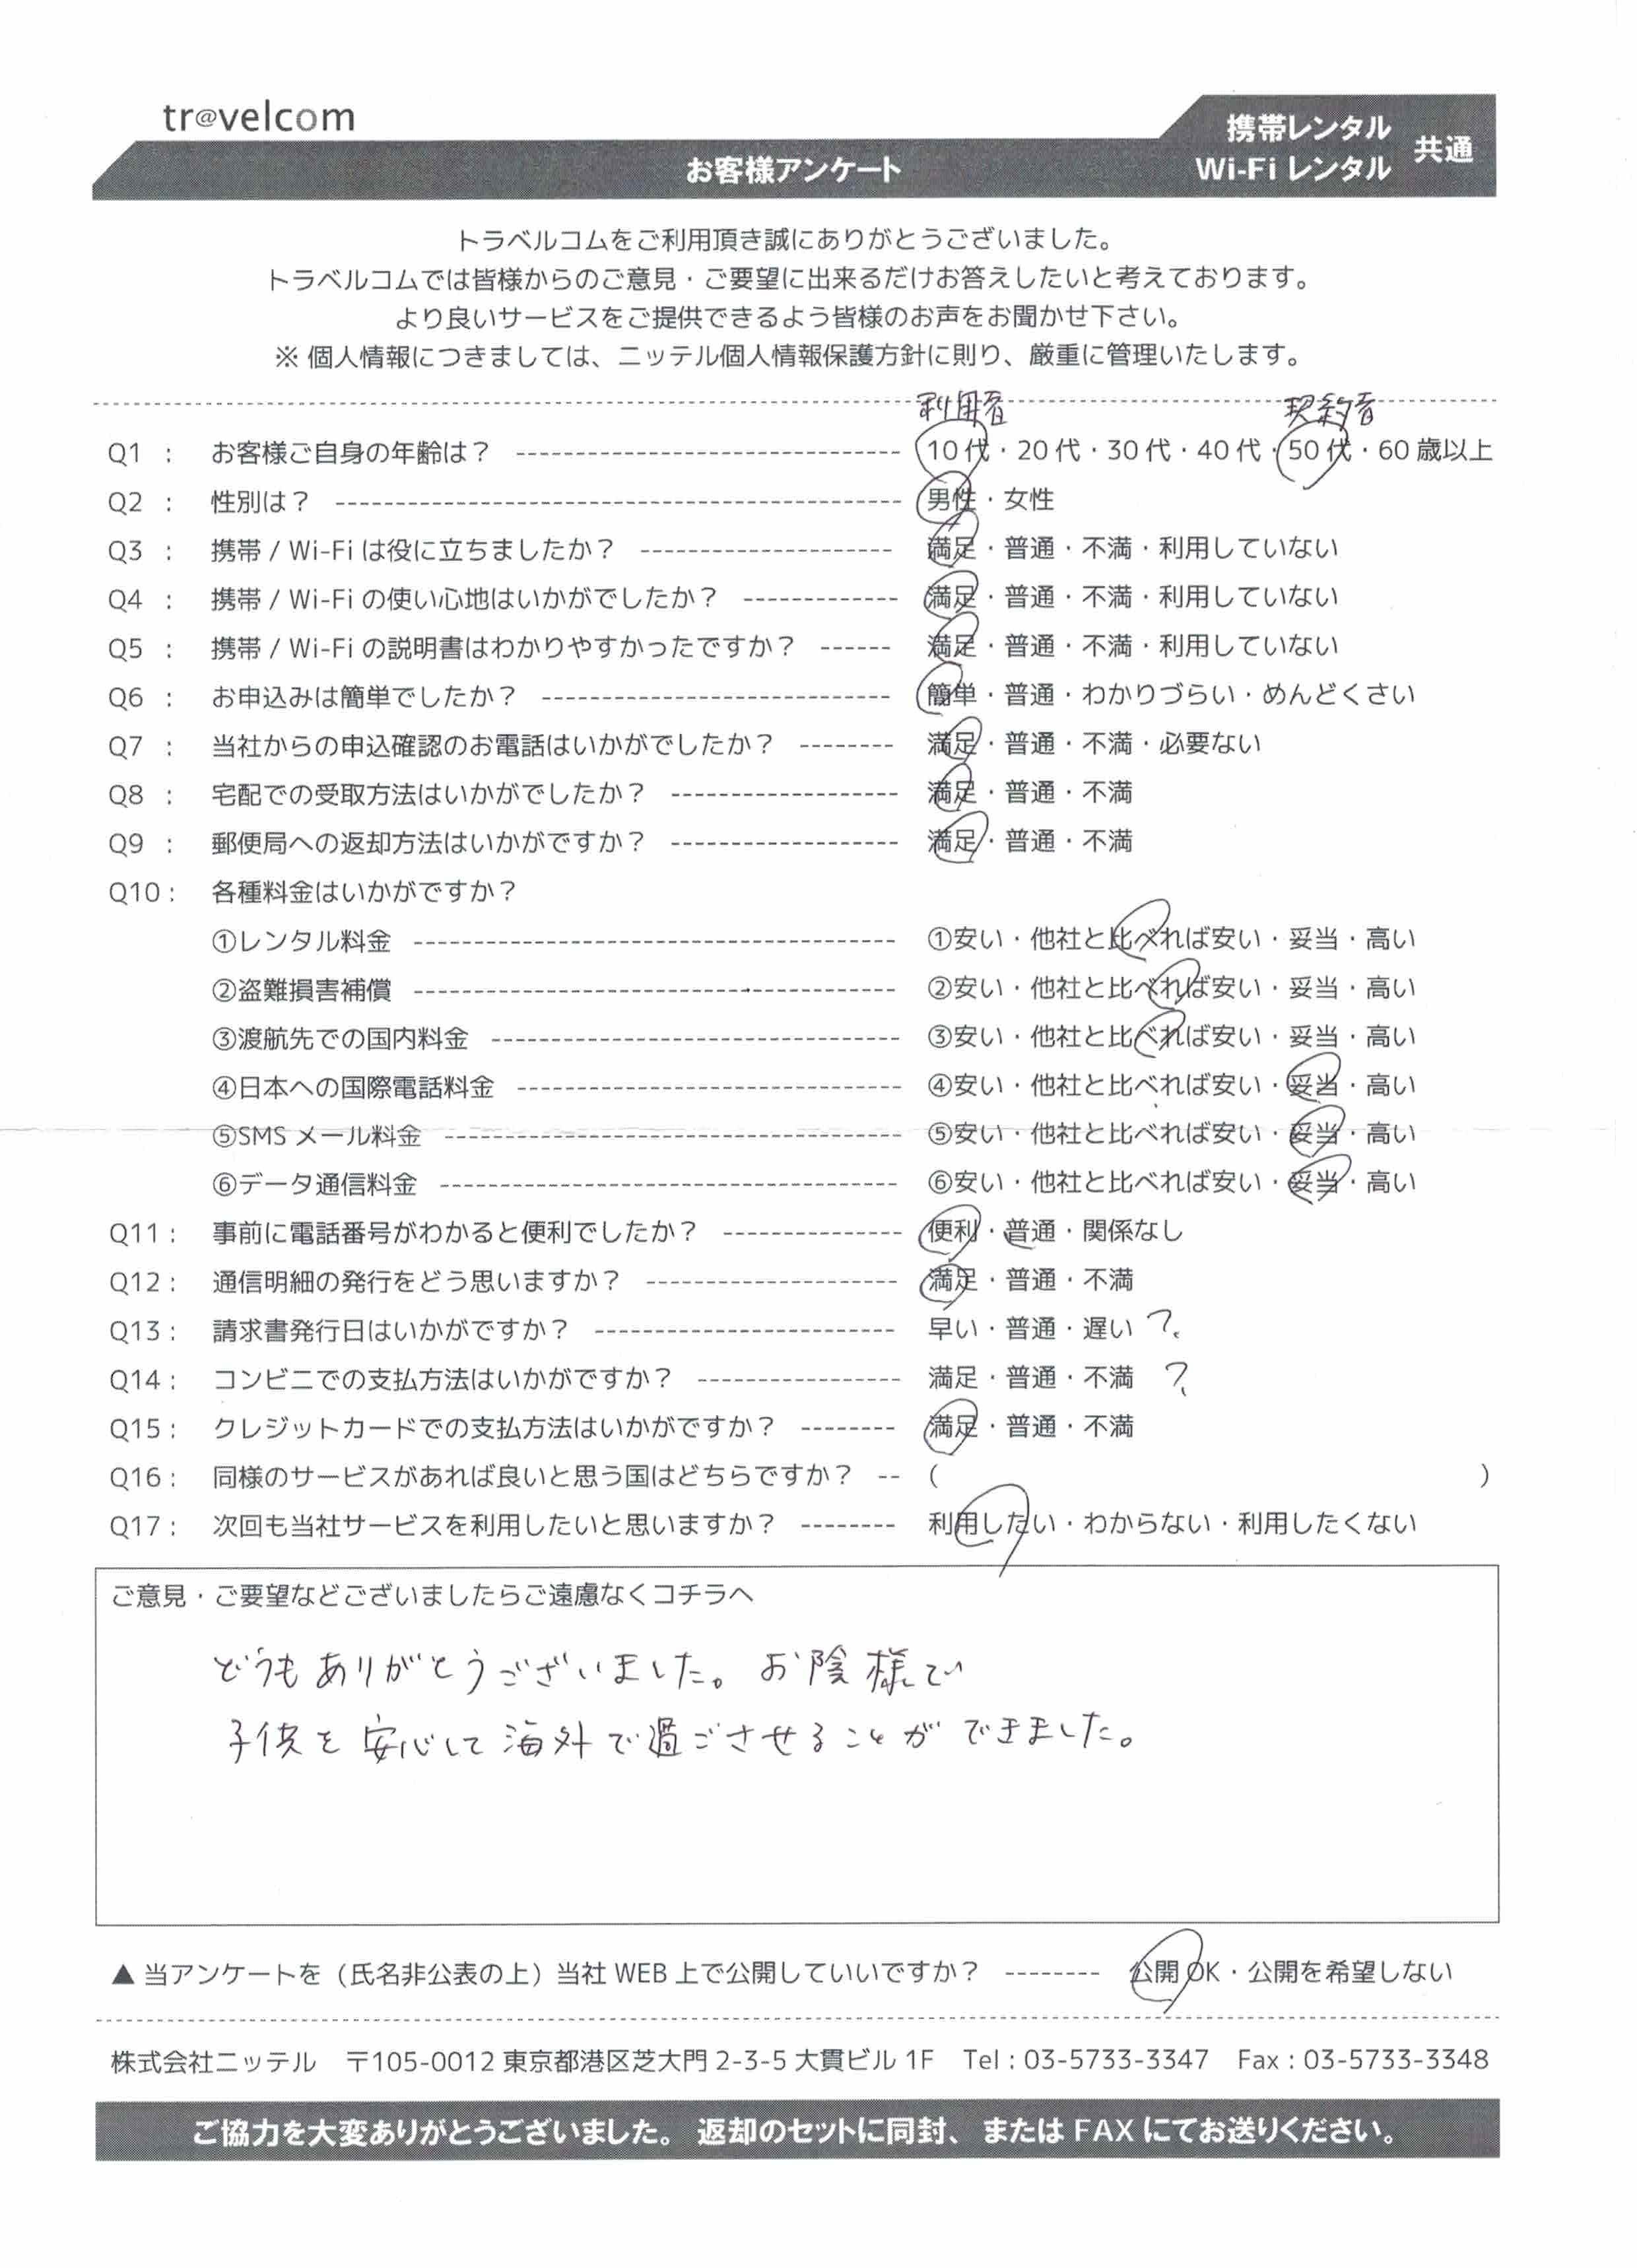 tr@velcom
携帯レンタル
Wi-Fi レンタル
共通
お客様アンケート
トラベルコムをご利用頂き誠にありがとうございました。
トラベルコムでは皆様からのご意見・ご要望に出来るだけお答えしたいと考えております。
より良いサービスをご提供できるよう皆様のお声をお聞かせ下さい。
※ 個人情報につきましては、ニッテル個人情報保護方針に則り、厳重に管理いたします。
利用者 契約者
Q1 : お客様ご自身の年齢は？ ------------------------------ 10 代・20 代・30 代・40 代・50 代・60 歳以上
Q2 : 性別は？ -------------------------------------------- 男性・女性
Q3 : 携帯 / Wi-Fi は役に立ちましたか？ -------------------- 満足・普通・不満・利用していない
Q4 : 携帯 / Wi-Fi の使い心地はいかがでしたか？ ------------ 満足・普通・不満・利用していない
Q5 : 携帯 / Wi-Fi の説明書はわかりやすかったですか？ ------ 満足・普通・不満・利用していない
Q6 : お申込みは簡単でしたか？ --------------------------- 簡単・普通・わかりづらい・めんどくさい
Q7 : 当社からの申込確認のお電話はいかがでしたか？ -------- 満足・普通・不満・必要ない
Q8 : 宅配での受取方法はいかがでしたか？ ------------------ 満足・普通・不満
Q9 : 郵便局への返却方法はいかがですか？ ------------------ 満足・普通・不満
Q10 : 各種料金はいかがですか？
①レンタル料金 -------------------------------------- ①安い・他社と比べれば安い・妥当・高い
②盗難損害補償 -------------------------------------- ②安い・他社と比べれば安い・妥当・高い
③渡航先での国内料金 -------------------------------- ③安い・他社と比べれば安い・妥当・高い
④日本への国際電話料金 ------------------------------ ④安い・他社と比べれば安い・妥当・高い
⑤SMS メール料金 ------------------------------------ ⑤安い・他社と比べれば安い・妥当・高い
⑥データ通信料金 ------------------------------------ ⑥安い・他社と比べれば安い・妥当・高い
Q11 : 事前に電話番号がわかると便利でしたか？ -------------- 便利・普通・関係なし
Q12 : 通信明細の発行をどう思いますか？ -------------------- 満足・普通・不満
Q13 : 請求書発行日はいかがですか？ ------------------------ 早い・普通・遅い ？
Q14 : コンビニでの支払方法はいかがですか？ ---------------- 満足・普通・不満 ？
Q15 : クレジットカードでの支払方法はいかがですか？ -------- 満足・普通・不満
Q16 : 同様のサービスがあれば良いと思う国はどちらですか？ -- ( )
Q17 : 次回も当社サービスを利用したいと思いますか？ -------- 利用したい・わからない・利用したくない
ご意見・ご要望などございましたらご遠慮なくコチラへ
どうもありがとうございました。お陰様で
子供を安心して海外で過ごさせることができました。
▲ 当アンケートを（氏名非公表の上）当社 WEB 上で公開していいですか？ -------- 公開 OK・公開を希望しない
株式会社ニッテル 〒105-0012 東京都港区芝大門 2-3-5 大貫ビル 1F Tel : 03-5733-3347 Fax : 03-5733-3348
ご協力を大変ありがとうございました。 返却のセットに同封、またはFAXにてお送りください。